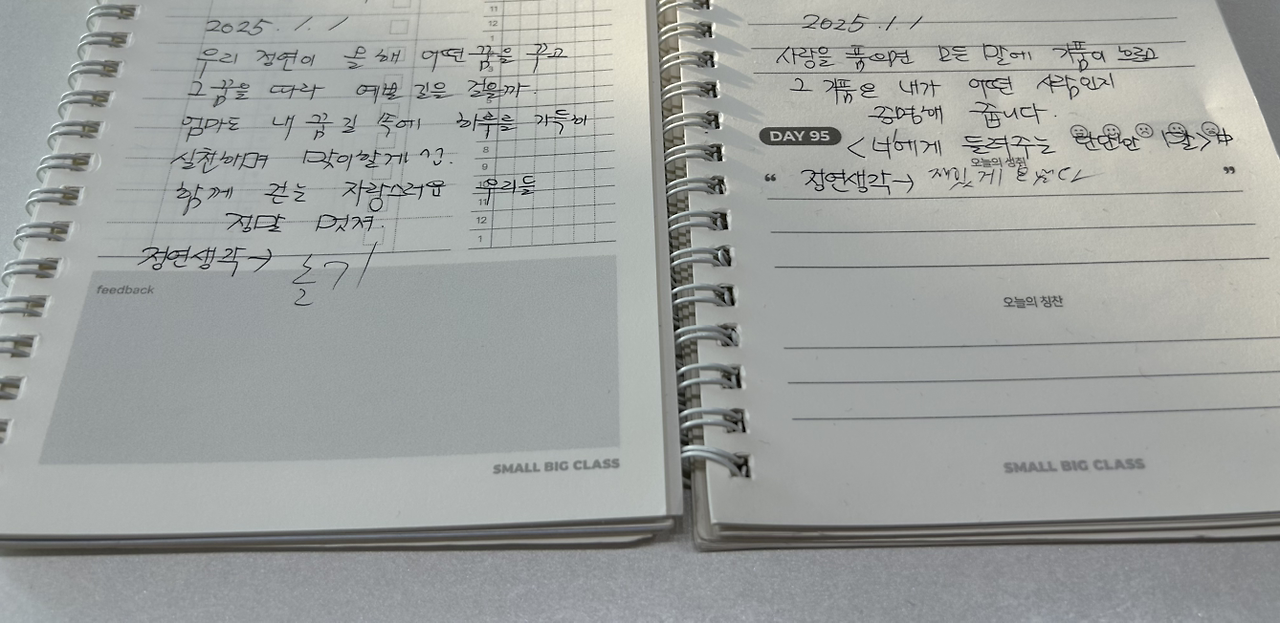 2025. 1. 1
우리 정연이 올해 어떤 꿈을 꾸고
그 꿈을 따라 예쁜 길을 걸을까.
엄마도 내 꿈 길 속에 하루를 가득히
실천하며 맞이할게 ^^.
함께 걷는 자랑스러운 우리들
정말 멋져.
정연생각→ 놀기
feedback
SMALL BIG CLASS
11
12
1
8
9
11
12
1
2025. 1. 1
사랑을 품으면 모든 말에 거품이 오르고
그 거품은 내가 어떤 사람인지
증명해 줍니다.
DAY 95
<너에게 들려주는 단단한 말> 中
오늘의 성취
“ 정연생각→ 재밌게 놀았다 ”
오늘의 칭찬
SMALL BIG CLASS